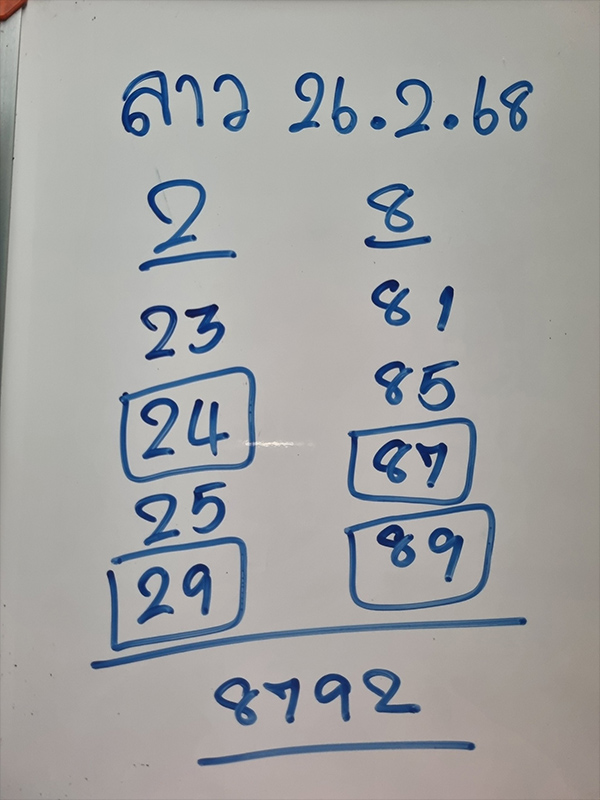 ลาว 26.2.68
2 8
23 81
24 85
25 87
29 89
8792